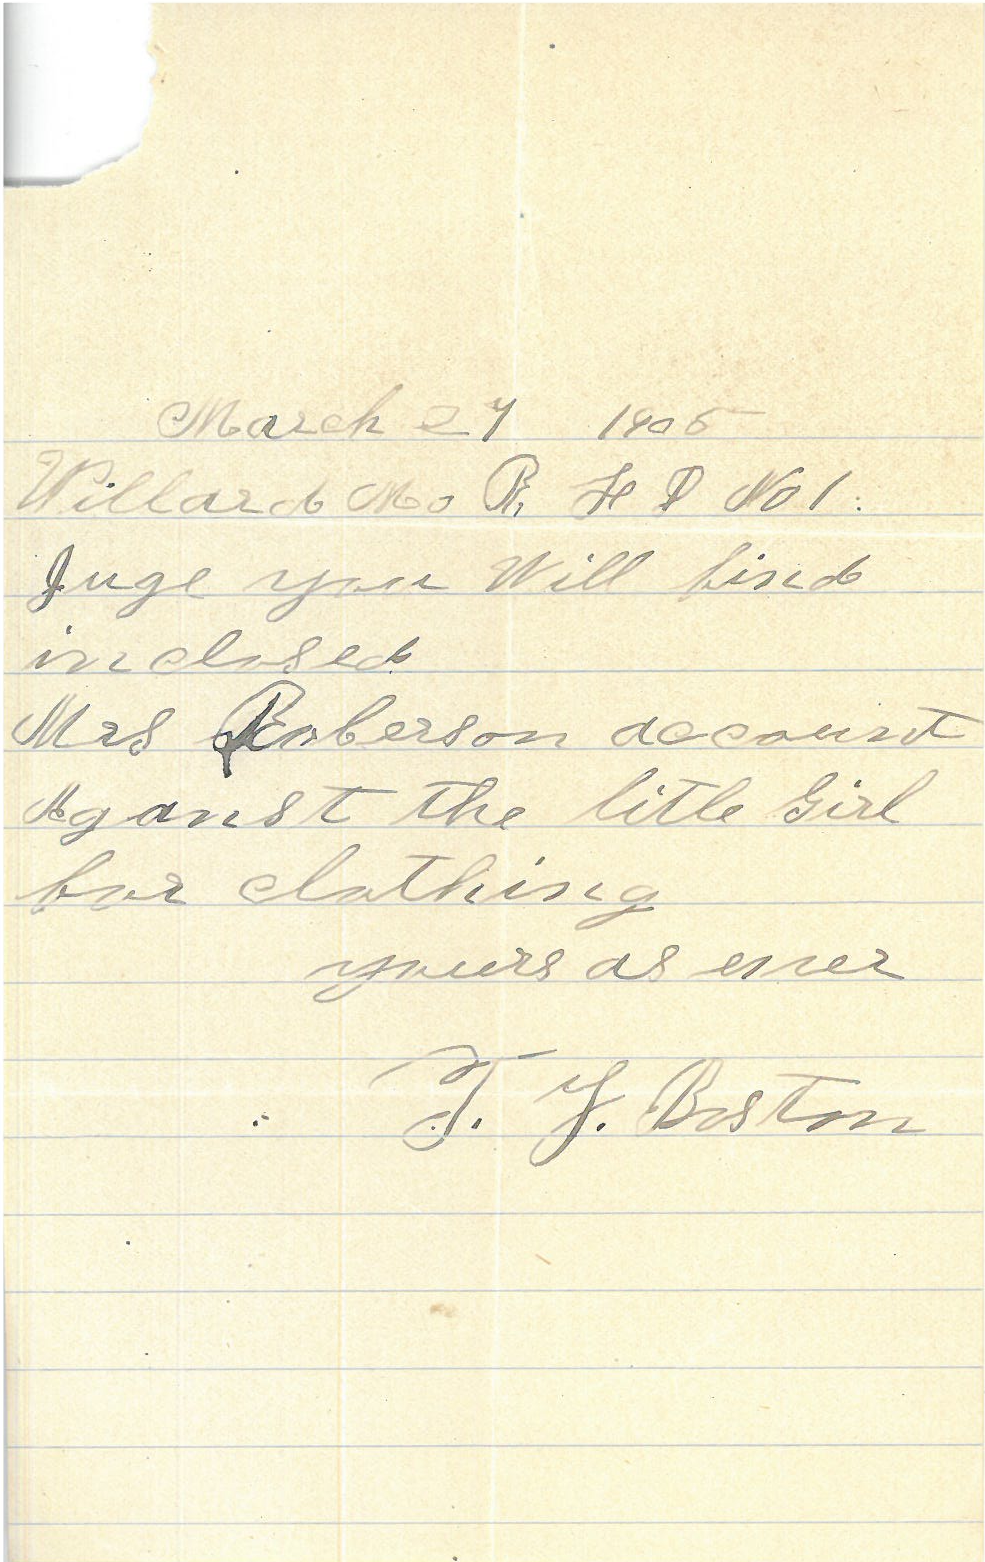 March 27 1905
Willard Mo R, F D No 1.
Juge you Will find
inclosed
Mrs Roberson account
Aganst the litle Girl
for clothing
yours as ever
T. J. Boston